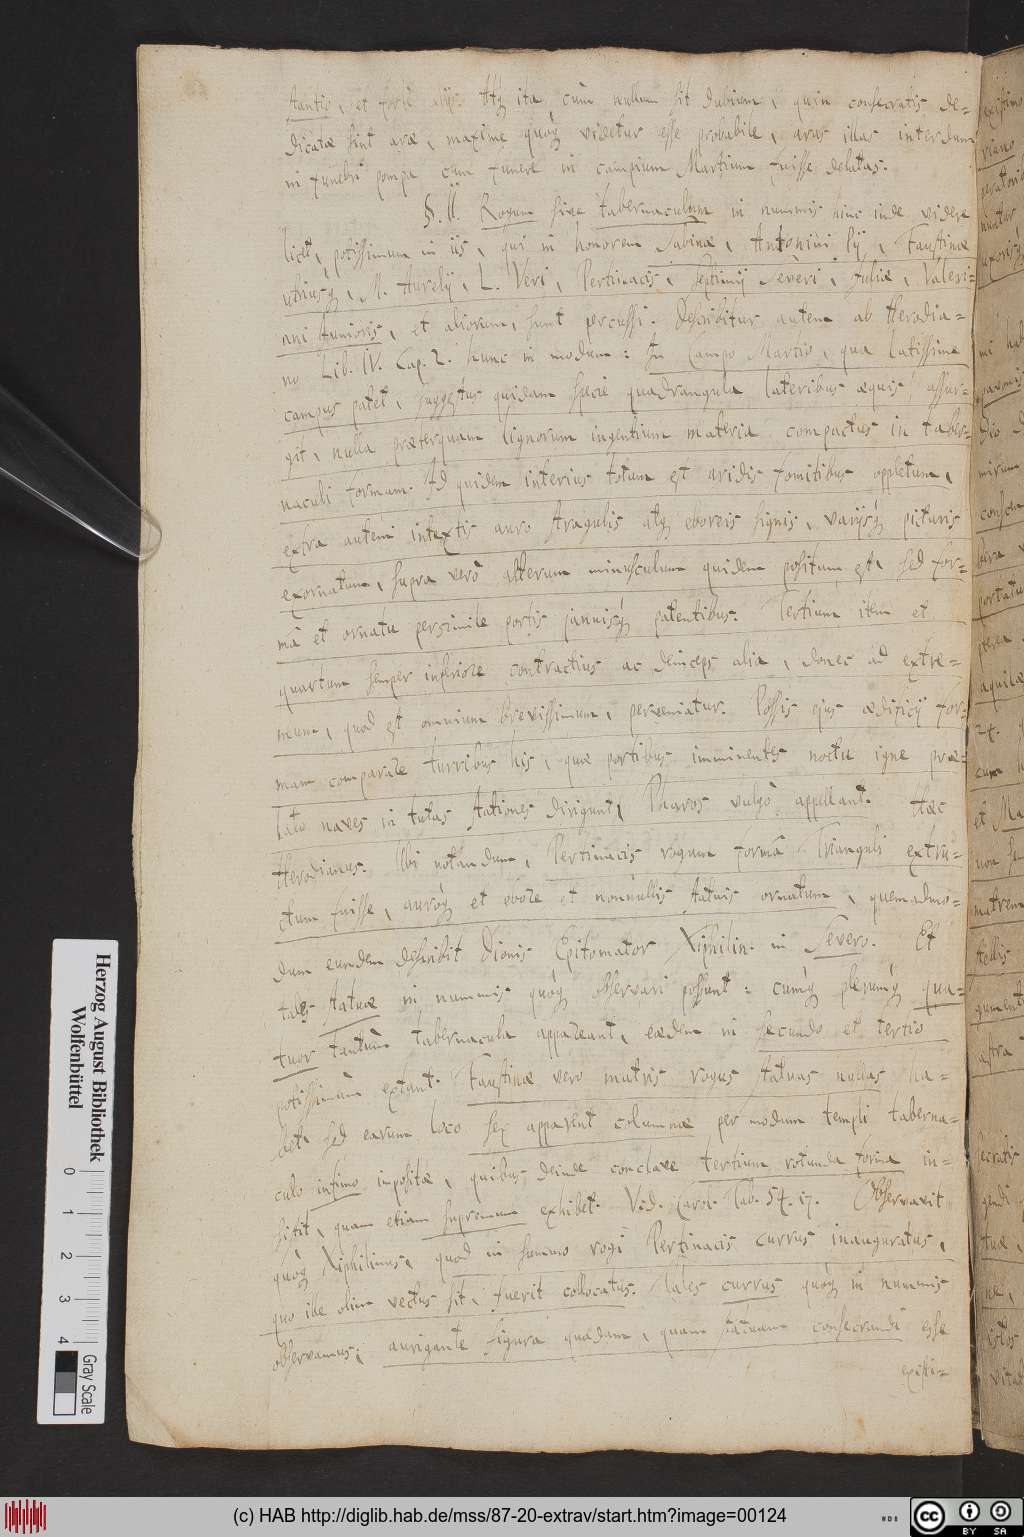 stantio, et forte alijs. Atq ita cùm nullum sit dubium, quin consecratis de=
dicatæ sint aræ, maxime quoq videtur esse probabile, aras illas interdum
in funebri pompa cum funere in campum Martium fuisse delatas.
§. II. Rogum sive tabernaculum in nummis hinc inde videre
licet, potissimum in iis, qui in honorem Sabinæ, Antonini Pij, Faustinæ
utriusq, M. Aurelij, L. Veri, Pertinacis, Septimij Severi, Juliæ, Valeri=
ani Junioris, et aliorum, sunt percussi. Describitur autem ab Herodia=
no Lib. IV. Cap. 2. hunc in modum: In Campo Martio, qua latissime
campus patet, suggestus quidam specie quadrangula lateribus æquis assur=
git, nulla præterquam lignorum ingentium materia compactus in taber=
naculi formam. Id quidem interius totum est aridis fomitibus oppletum,
extra autem intextis auro stragulis atq eboreis signis, varijsq picturis
exornatum, supra verò alterum minusculum quidem positum est, sed for=
mâ et ornatu persimile portis januisq patentibus. Tertium item et
quartum semper inferiore contractius ac deinceps alia, donec ad extre=
mum, quod est omnium brevissimum, perveniatur. Possis ejus ædificij for=
mam comparare turribus his, quæ portibus imminentes noctu igne præ=
lato naves in tutas stationes dirigunt, Pharos vulgò appellant. Hæc
Herodianus. Ubi notandum, Pertinacis rogum formâ Trianguli extru=
ctum fuisse, auroq et ebore et nonnullis statuis ornatum, quemadmo=
dum eundem describit Dionis Epitomator Xiphilin. in Severo. Et
tales statuæ in nummis quoq observari possunt: cumq plerumq qua=
tuor tantùm tabernacula appareant, eædem in secundo et tertio
potissimùm extant. Faustinæ vero matris rogus statuas nullas ha=
bet, sed earum loco sex apparent columnæ per modum templi taberna=
culo infimo inpositæ, quibus deinde conclave tertium rotunda forma in=
sistit, quam etiam supremum exhibet. Vid. Carol. Tab. 54. 17. Observavit
quoq Xiphilinus, quod in summo rogi Pertinacis currus inauguratus,
quo ille olim vectus sit, fuerit collocatus. Tales currus quoq in nummis
observamus; aurigante figura quadam, quam statuam consecrandi esse
existi=
Herzog August Bibliothek
Wolfenbüttel
0 1 2 3 4
Gray Scale
(c) HAB http://diglib.hab.de/mss/87-20-extrav/start.htm?image=00124
cc BY SA